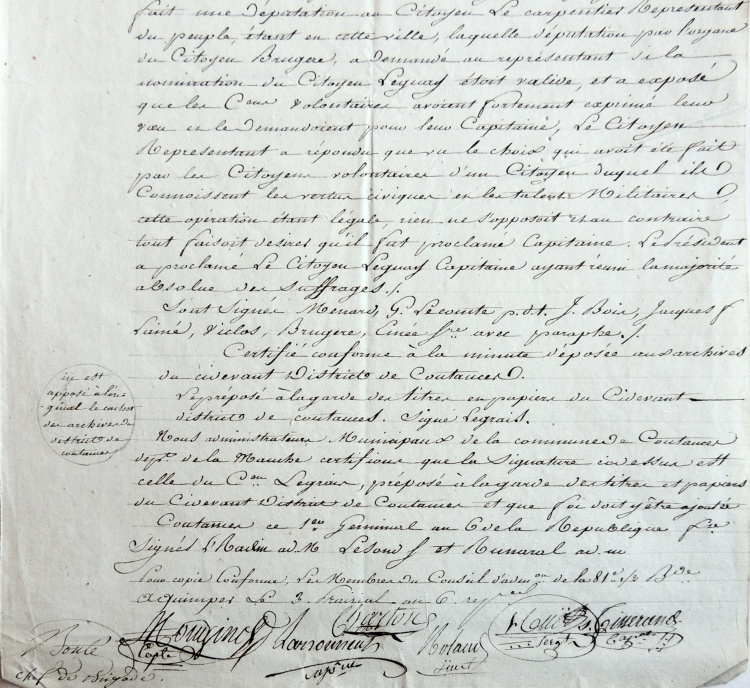 fait une Députation au Citoyen Le carpentier Représentant
du peuple, étant en cette ville, laquelle députation par l'organe
du Citoyen Brugere, a demandé au représentant si la
nomination du Citoyen Leguay étoit valide, et a exposé
que les C.ens volontaires avoient fortement exprimé leur
vœu et le demandoient pour leur Capitaine, Le Citoyen
Représentant a répondu que vu le choix qui avoit été fait
par les Citoyens volontaires d'un Citoyen duquel ils
Connoissent les vertus civiques et les talents Militaires
cette opération étant légale, rien ne s'opposoit et au contraire
tout faisoit desirer qu'il fut proclamé Capitaine. Le Président
a proclamé Le Citoyen Leguay Capitaine ayant réuni la majorité
absolue des suffrages./.
Sont Signés Menard, G. Lecomte p.d.t. J. Bois, Jacques f
Lainé, Viclos, Brugere, S.re avec paraphe./.
Certifié conforme à la minute déposée aux archives
du cidevant District de Coutances.
Le préposé à la garde des titres et papiers du Cidevant
district de coutances. Signé Legrais.
ici est
apposé à l'ori-
ginal le cachet
des archives du
district de
coutances
Nous administrateurs Municipaux de la commune de Coutances
dep.t de la Manche certifions que la Signature cidessus est
celle du C.en Legrais, préposé à la garde des titres et papiers
du Cidevant District de Coutances et que foi doit y être ajoutée
Coutances ce 1.er Germinal an 6 de la République f.se
Signés ad. M Lesond et Runaral ad. m
Pour copie Conforme, Les Membres du Conseil d'adm.on de la 81.e 1/2 B.de
a Quimper Le 3. Prairial an 6. rep
Mougino
Cap.te
Larronneur
cap.ne
Charton
Rolland
Serg.t
chef de Brigade